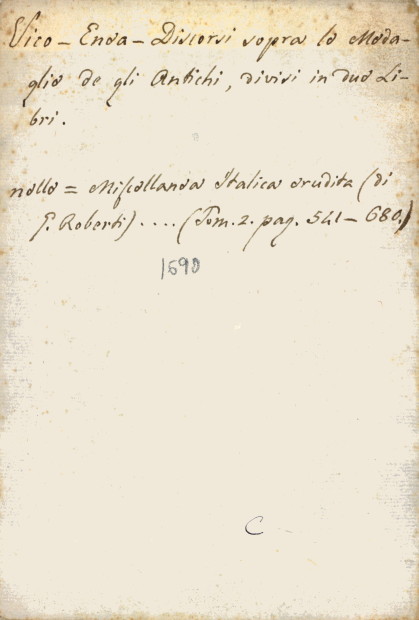 Vico - Enea - Discorsi sopra le Meda-
glie de gli Antichi, divisi in due Li-
bri.
nelle = Miscellanea Italica erudita (di
G. Roberti) .... (Tom. 2. pag. 541 - 680.)
1690
C